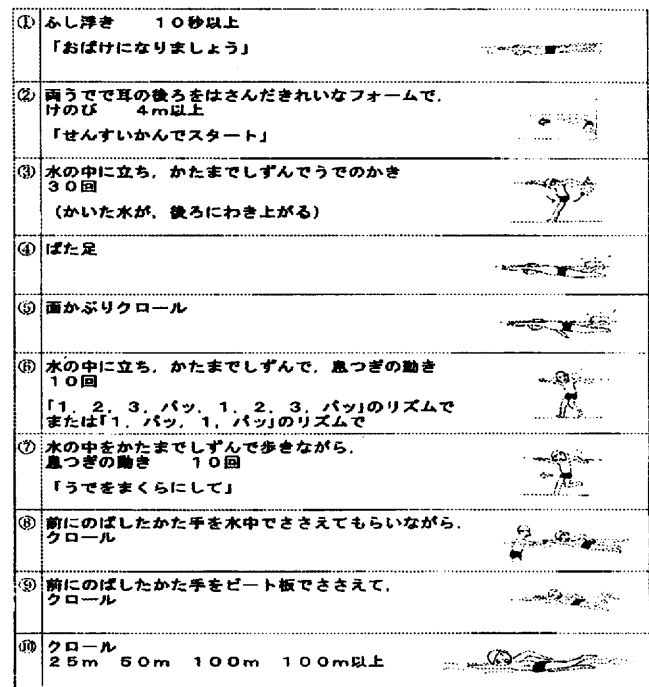 ① ふし浮き　　１０秒以上
「おばけになりましょう」
② 両うでで耳の後ろをはさんだきれいなフォームで，
けのび　　４ｍ以上
「せんすいかんでスタート」
③ 水の中に立ち，かたまでしずんでうでのかき
３０回
（かいた水が，後ろにわき上がる）
④ ばた足
⑤ 面かぶりクロール
⑥ 水の中に立ち，かたまでしずんで，息つぎの動き
１０回
「１，２，３，パッ，１，２，３，パッ」のリズムで
または「１，パッ，１，パッ」のリズムで
⑦ 水の中をかたまでしずんで歩きながら，
息つぎの動き　　１０回
「うでをまくらにして」
⑧ 前にのばしたかた手を水中でささえてもらいながら，
クロール
⑨ 前にのばしたかた手をビート板でささえて，
クロール
⑩ クロール
２５ｍ　５０ｍ　１００ｍ　１００ｍ以上